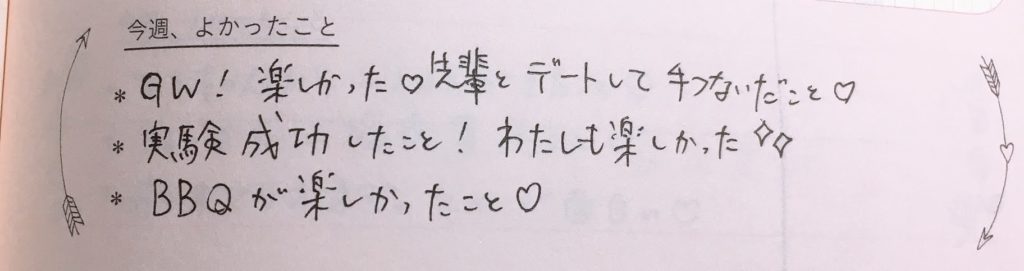 今週、よかったこと
* GW! 楽しかった♡先輩と デートして 手つないだこと♡
* 実験 成功したこと! わたしも楽しかった✧✧
* BBQが楽しかったこと♡